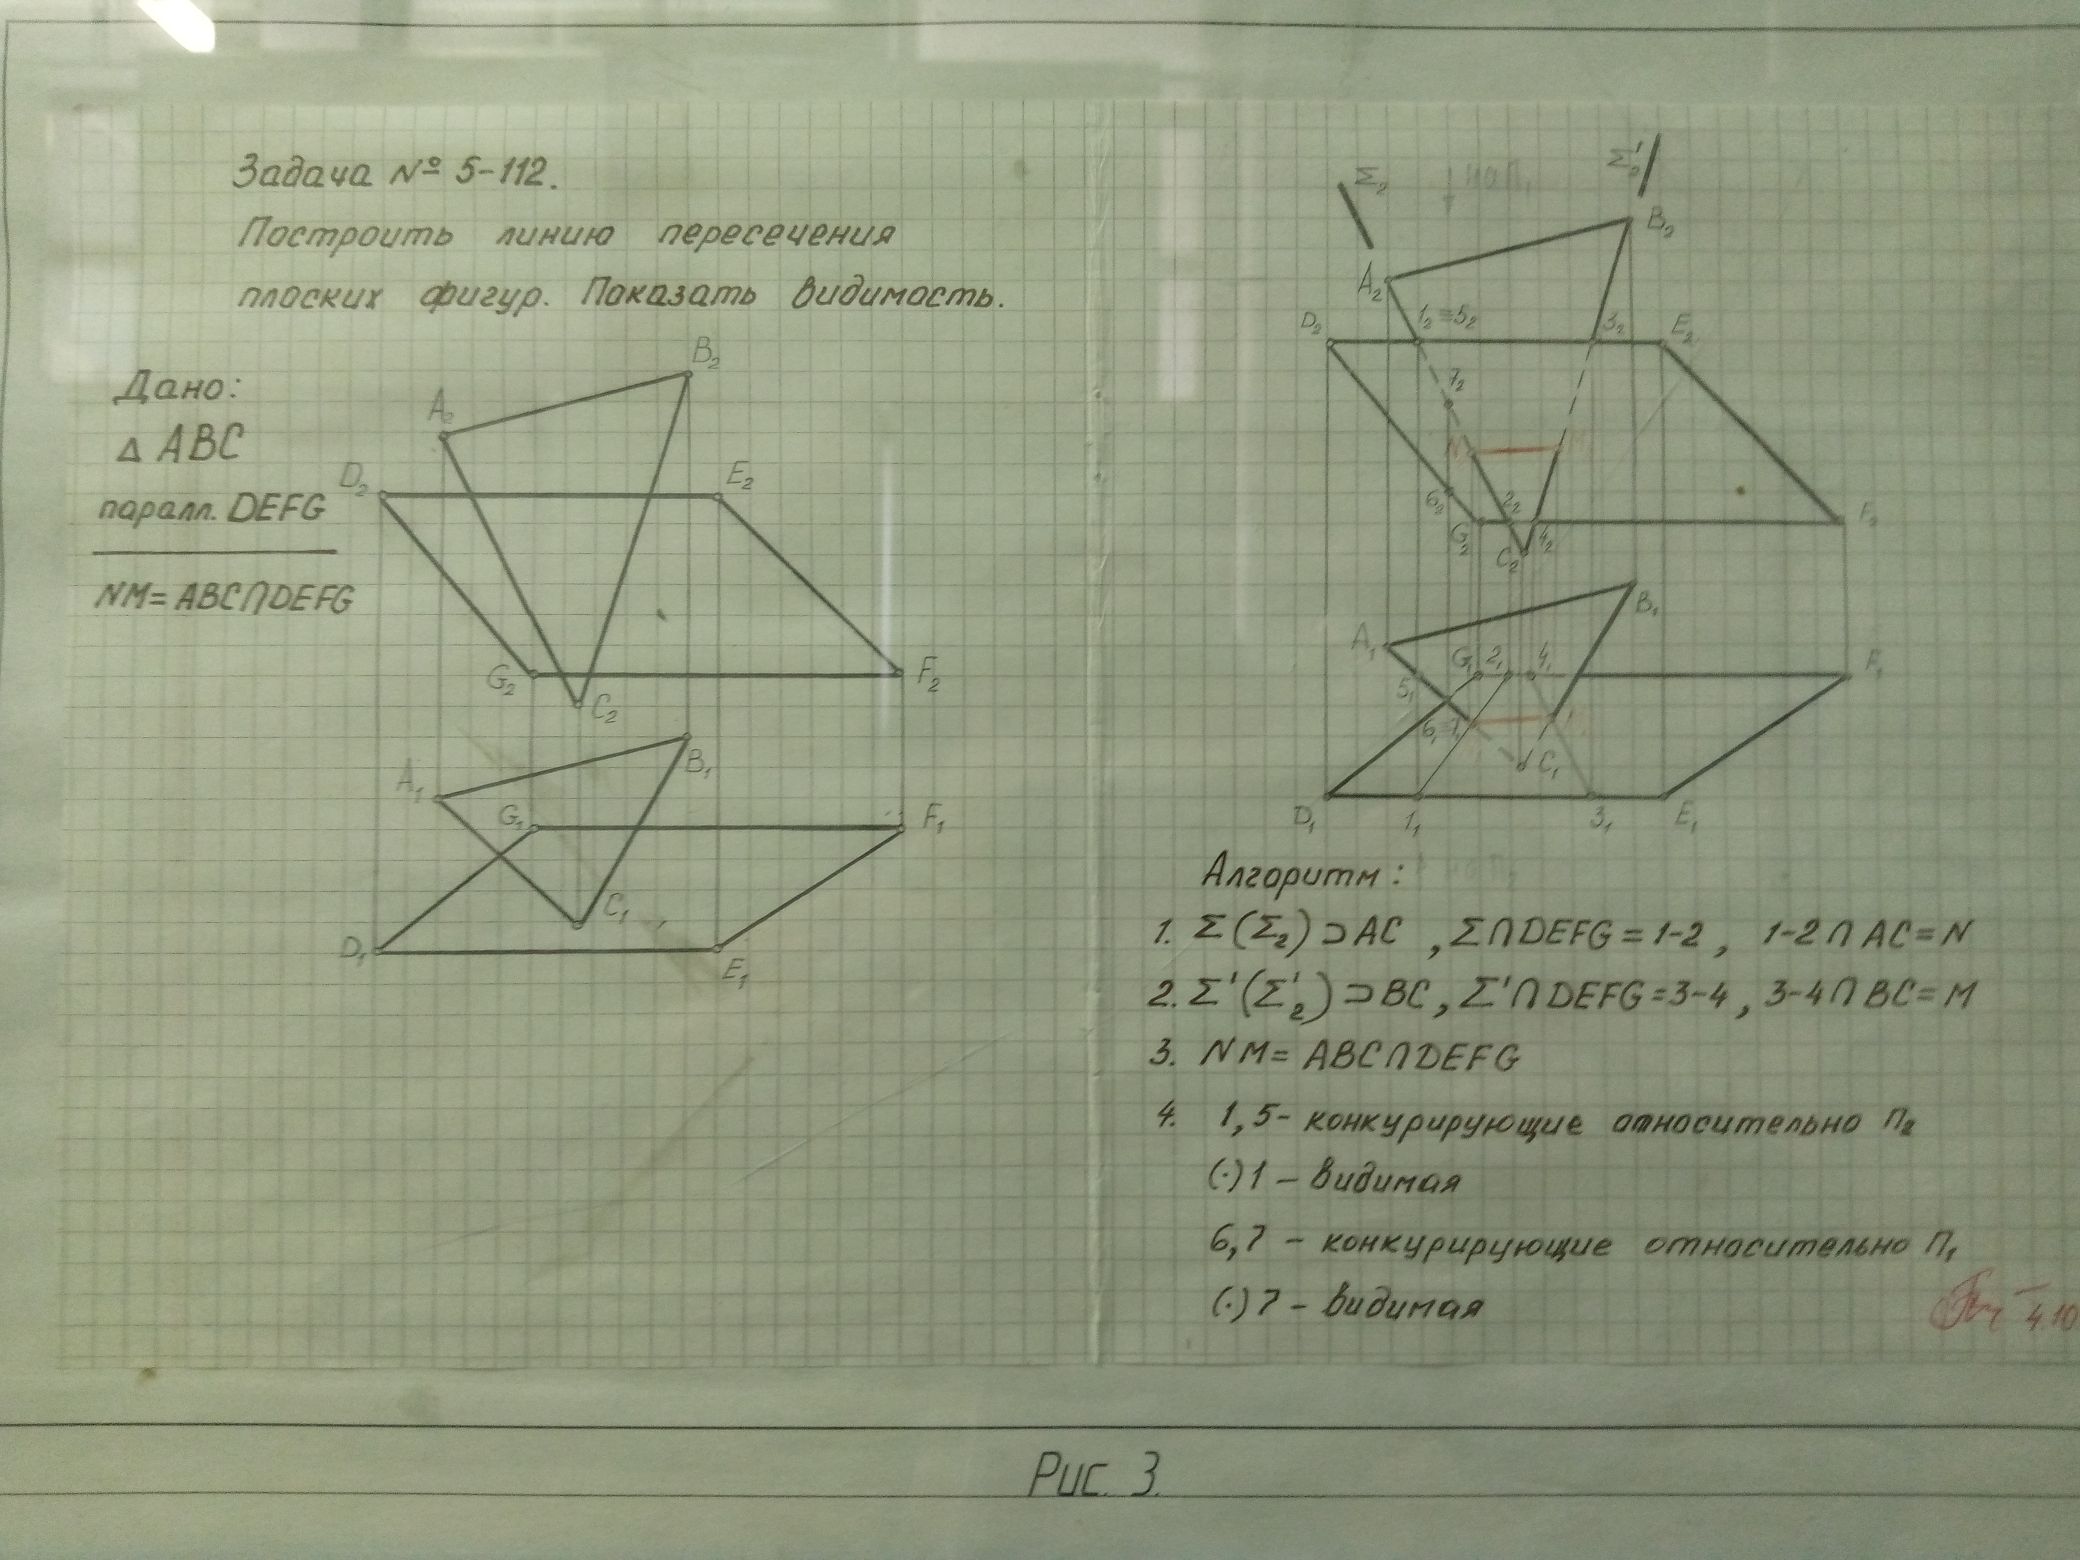 Задача № 5-112.
Построить линию пересечения
плоских фигур. Показать видимость.
Дано:
△ ABC
паралл. DEFG
NM= ABC∩DEFG
A₂
B₂
D₂
E₂
G₂
C₂
F₂
A₁
B₁
G₁
F₁
C₁
D₁
E₁
Σ₂
на П₁
Σ'₂
B₂
A₂
D₂
1₂≡5₂
3₂
E₂
7₂
6₂
2₂
G₂
C₂
4₂
F₂
B₁
A₁
G₁
2₁
4₁
F₁
5₁
6₁≡7₁
C₁
D₁
1₁
3₁
E₁
Алгоритм:
1. Σ(Σ₂)⊃AC , Σ∩DEFG = 1-2 , 1-2∩AC=N
2. Σ'(Σ'₂)⊃BC, Σ'∩DEFG=3-4 , 3-4∩BC=M
3. NM= ABC∩DEFG
4. 1,5- конкурирующие относительно П₂
(·)1 – видимая
6,7 – конкурирующие относительно П₁
(·)7 – видимая
4.10
Рис. 3.